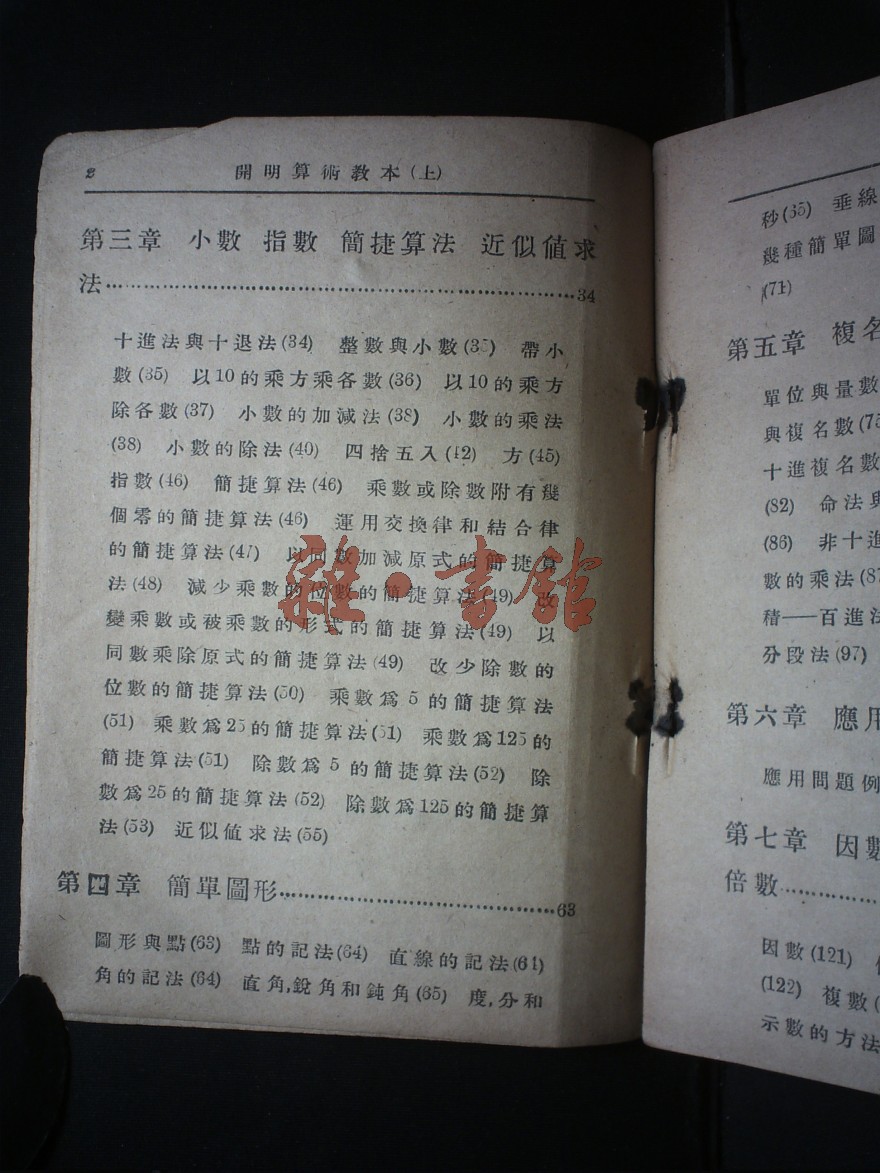 2 開明算術教本(上)
第三章 小數 指數 簡捷算法 近似値求
法…………………………34
十進法與十退法(34) 整數與小數(35) 帶小
數(35) 以10的乘方乘各數(36) 以10的乘方
除各數(37) 小數的加減法(38) 小數的乘法
(38) 小數的除法(40) 四捨五入(42) 方(45)
指數(46) 簡捷算法(46) 乘數或除數附有幾
個零的簡捷算法(46) 運用交換律和結合律
的簡捷算法(47) 以同數加減原式的簡捷算
法(48) 減少乘數的位數的簡捷算法(49) 改
變乘數或被乘數的形式的簡捷算法(49) 以
同數乘除原式的簡捷算法(49) 改少除數的
位數的簡捷算法(50) 乘數爲5的簡捷算法
(51) 乘數爲25的簡捷算法(51) 乘數爲125的
簡捷算法(51) 除數爲5的簡捷算法(52) 除
數爲25的簡捷算法(52) 除數爲125的簡捷算
法(53) 近似値求法(55)
第四章 簡單圖形…………………………63
圖形與點(63) 點的記法(64) 直線的記法(64)
角的記法(64) 直角,銳角和鈍角(65) 度,分和
雜·書館
秒(65) 垂線
幾種簡單圖
(71)
第五章 複名
單位與量數
與複名數(75
十進複名數
(82) 命法與
(86) 非十進
數的乘法(87
積——百進法
分段法(97)
第六章 應用
應用問題例
第七章 因數
倍數…………
因數(121)
(122) 複數(
示數的方法